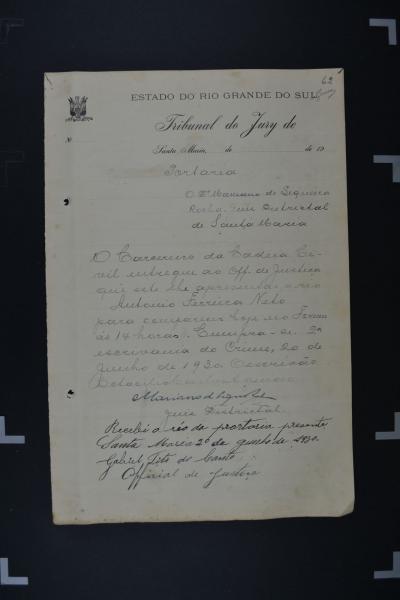 62
ESTADO DO RIO GRANDE DO SUL
Tribunal do Jury de
Nº
Santa Maria, de de 19
Portaria
O Dr Mariano de Siqueira
Rocha, Juis Districtal
de Santa Maria
O Carcereiro da Cadeia Ci-
vil entregue ao Off. de Justiça
que este lhe apresentar o réo
Antonio Ferreira Neto
para comparecer hoje no Forum
ás 14 horas. Cumpra-se. 2ª
escrivania do Crime, 20 de
Junho de 1930. O escrivão
Mariano d
Juis Districtal.
Recebi o réo da portaria presente
Santa Maria 20 de junho de 1930.
Gabriel Tito do Canto
Official de Justiça